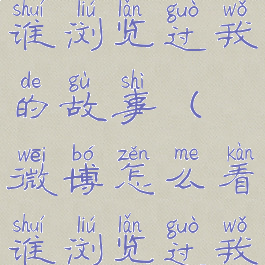 shuí liú lǎn guò wǒ
谁浏览过我
de gù shì
的故事(
wēi bó zěn me kàn
微博怎么看
shuí liú lǎn guò wǒ
谁浏览过我